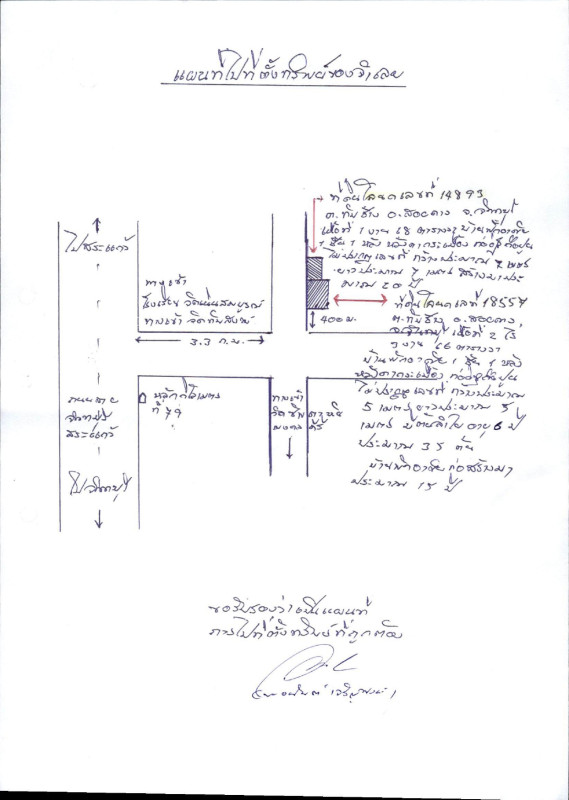 แผนที่ไปที่ตั้งทรัพย์ของจำเลย
ที่ดินโฉนดเลขที่ 14893
ต.ทับช้าง อ.สอยดาว จ.จันทบุรี
เนื้อที่ 1 งาน 68 ตารางวา บ้านพักอาศัย
1 ชั้น 1 หลัง หลังคากระเบื้อง ก่ออิฐถือปูน
ไม่ปรากฏเลขที่ กว้างประมาณ 7 เมตร
ยาวประมาณ 7 เมตร สร้างมาประ
มาณ 20 ปี
ที่ดินโฉนดเลขที่ 18557
ต.ทับช้าง อ.สอยดาว
จ.จันทบุรี เนื้อที่ 2 ไร่
งาน 66 ตารางวา
บ้านพักอาศัย 1 ชั้น 1 หลัง
หลังคากระเบื้อง ก่ออิฐถือปูน
ไม่ปรากฏเลขที่ กว้างประมาณ
5 เมตร ยาวประมาณ 5
เมตร มีต้นลำไย อายุ 6 ปี
ประมาณ 35 ต้น
บ้านพักอาศัยก่อสร้างมา
ประมาณ 15 ปี
400 ม.
ไปสระแก้ว
ทางเข้า
โรงเรียนวัดเนินสมบูรณ์
ทางเข้า
3.3 ก.ม.
ถนนสาย
จันทบุรี
สระแก้ว
หลักกิโลเมตร
ที่ 79
ทางเข้า
วัด
ไปจันทบุรี
ขอรับรองว่าเป็นแผนที่
การไปที่ตั้งทรัพย์ที่ถูกต้อง